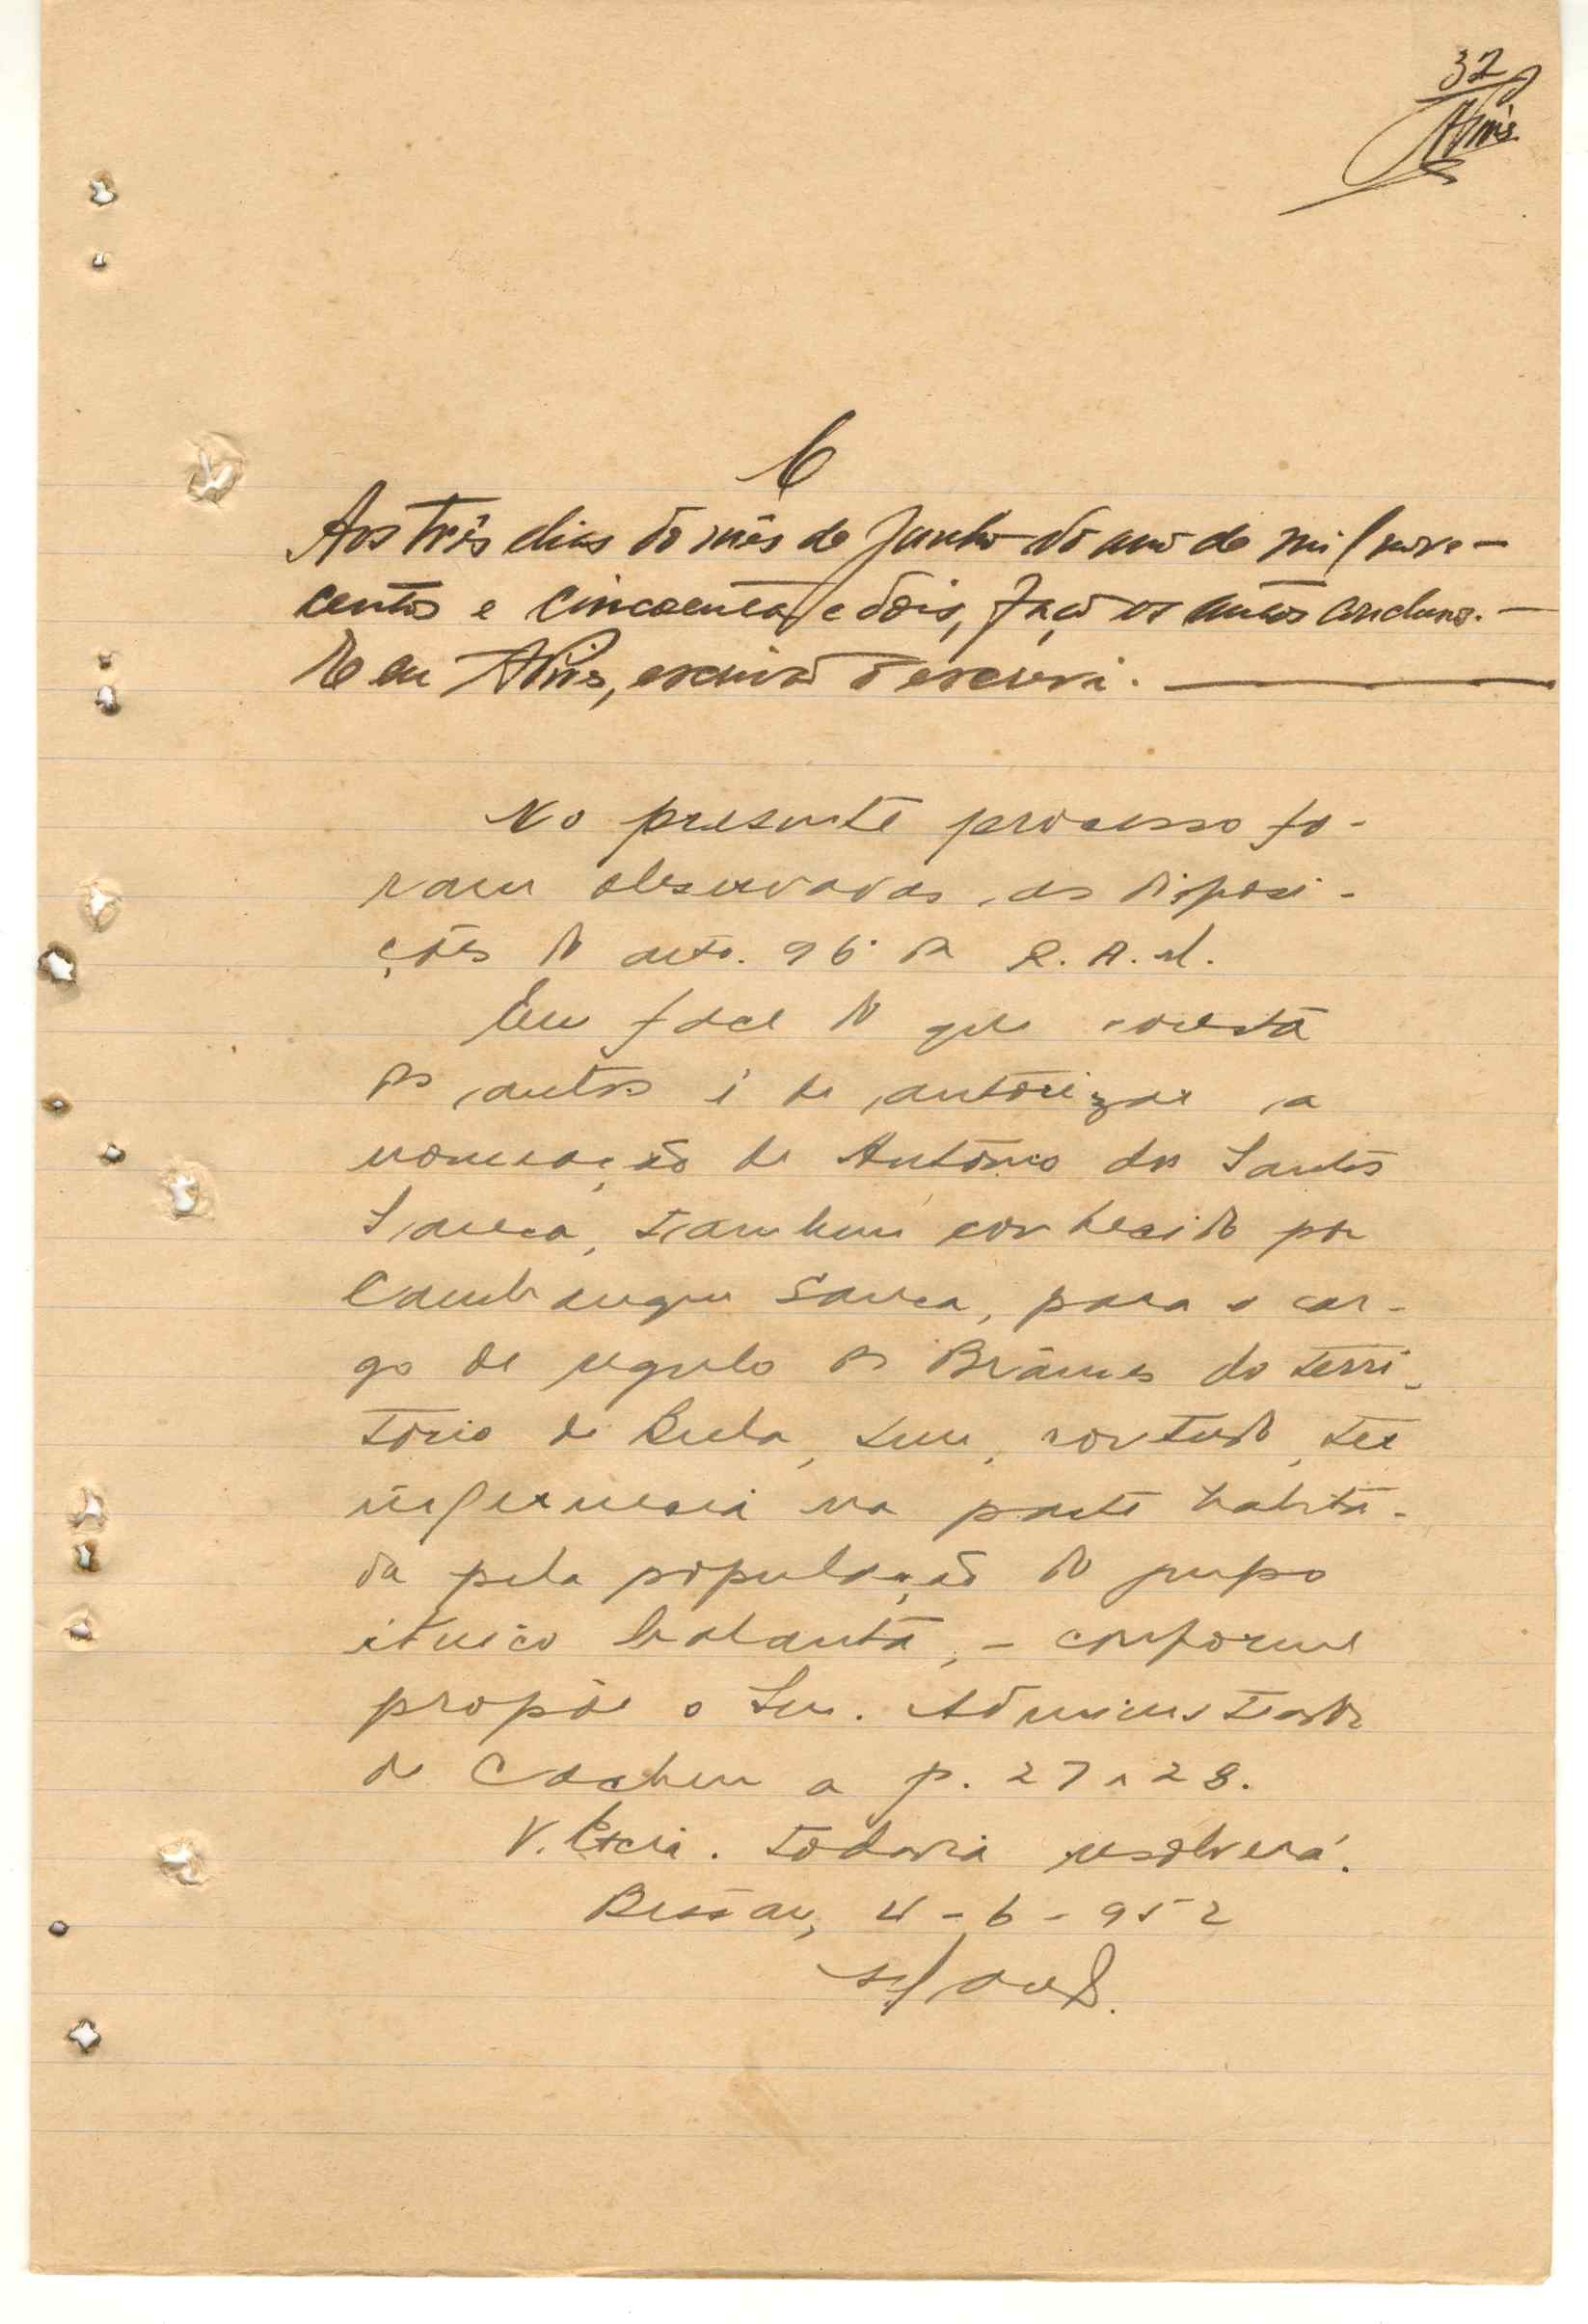 32
APires
C
Aos três dias do mês de Junho do ano de mil nove-
centos e cincoenta e dois, faço os autos conclusos. -
E eu APires, escrivão o escrevi.
No presente processo fo-
ram observadas as disposi-
ções do arto. 96º da R.A.U.
Em face do que consta
dos autos é de autorizar a
nomeação de António dos Santos
Sanca, tambem conhecido por
Sanca, para o car-
go de regulo dos Brâmes do terri-
tório de Bula, sem, contudo, ter
ingerencia na parte habita-
da pela população do grupo
étnico balanta, - conforme
propõe o Snr. Administrador
de Cacheu a p. 27 a 28.
V. Excia. todavia resolverá.
Bissau, 4-6-952